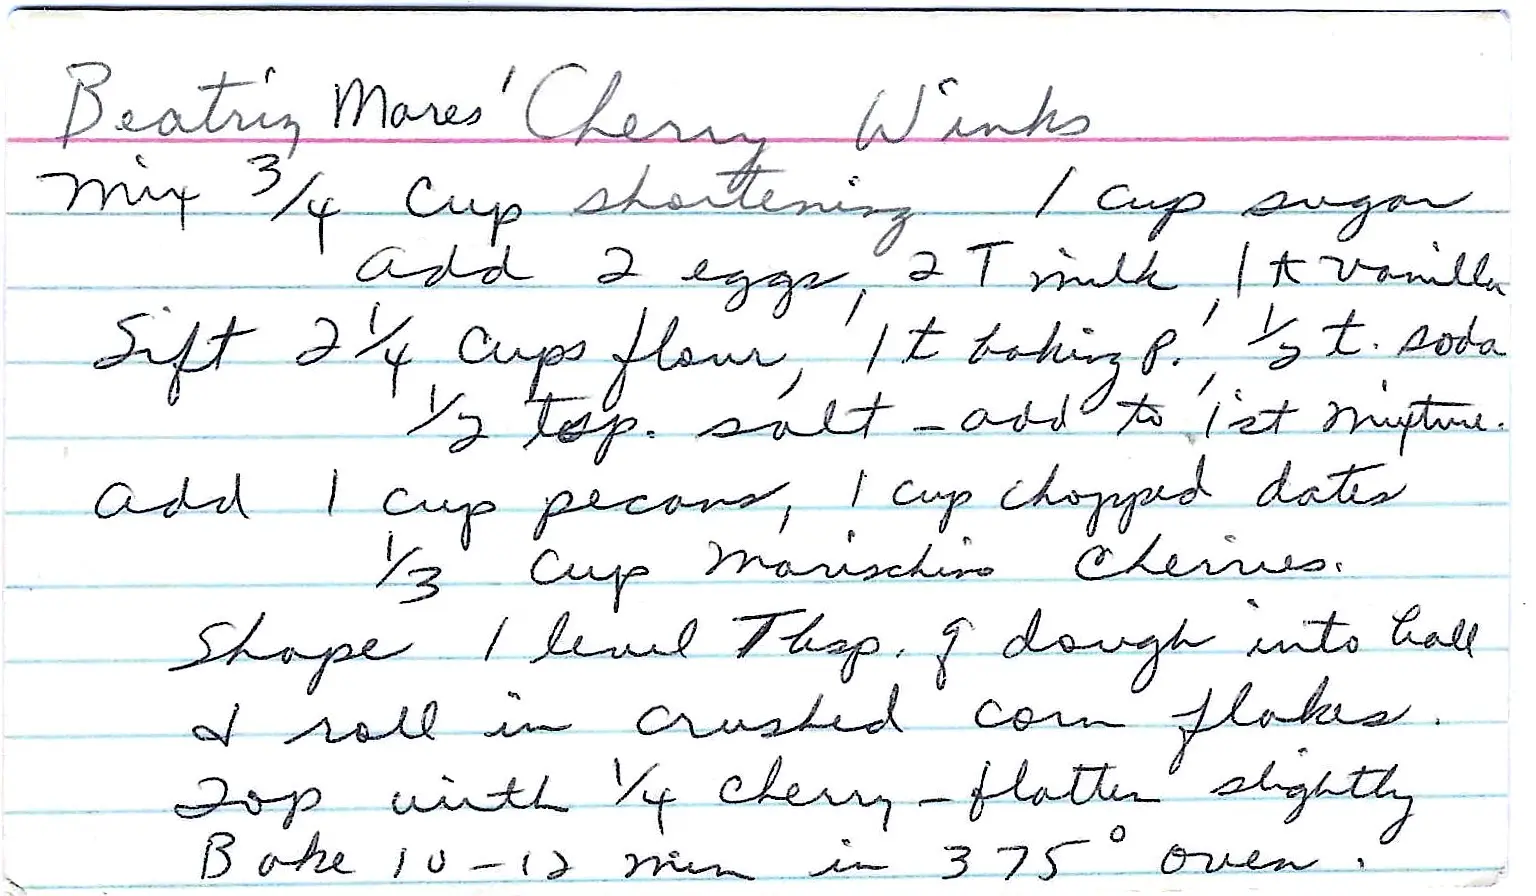 Beatriz Mares' Cherry Winks
Mix 3/4 cup shortening 1 cup sugar
add 2 eggs, 2 T milk, 1 t vanilla
Sift 2 1/4 cups flour, 1 t baking p., 1/2 t. soda
1/2 tsp. salt - add to 1st mixture.
add 1 cup pecans, 1 cup chopped dates
1/3 cup Marischino Cherries.
Shape 1 level Tbsp. of dough into ball
& roll in crushed corn flakes.
Top with 1/4 cherry - flatten slightly
Bake 10-12 min in 375° oven.